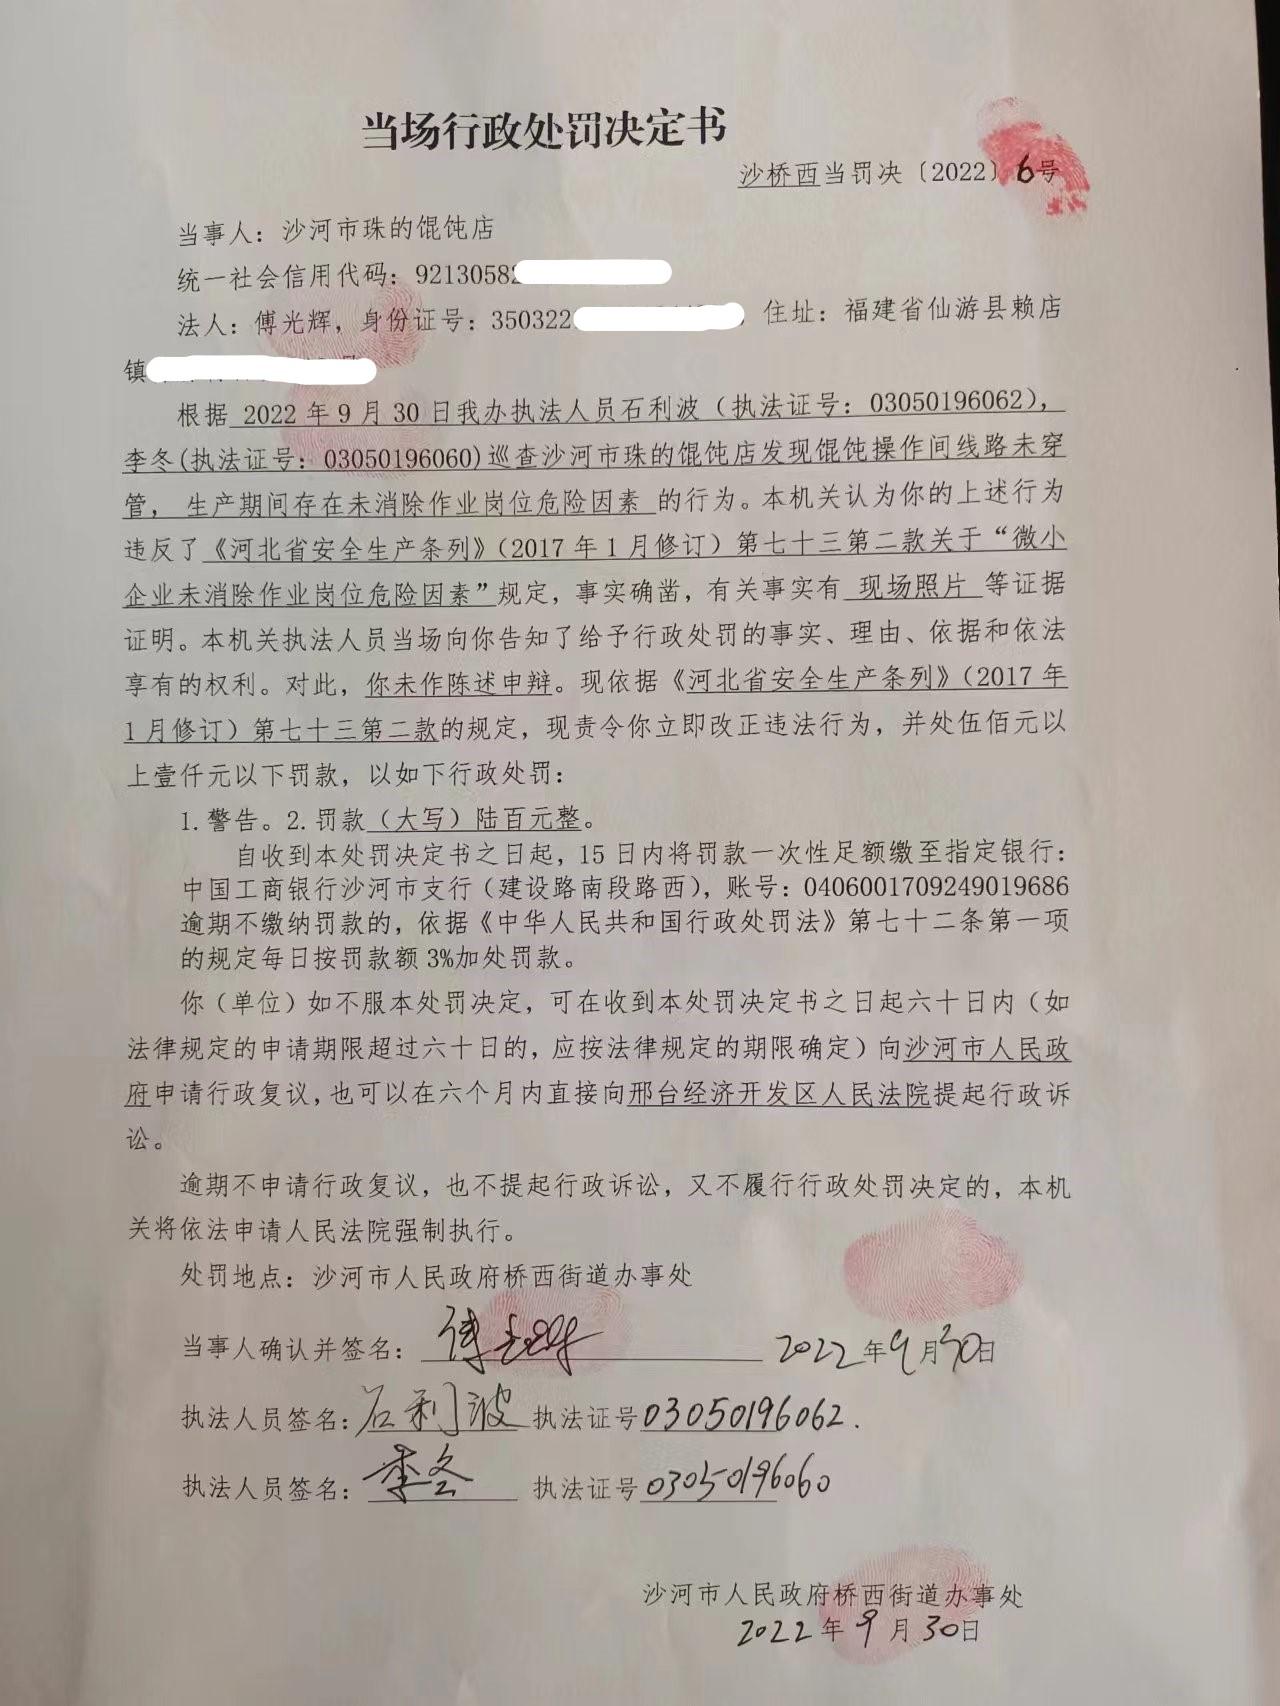 当场行政处罚决定书
沙桥西当罚决〔2022〕6号
当事人：沙河市珠的馄饨店
统一社会信用代码：92130582
法人：傅光辉，身份证号：350322 住址：福建省仙游县赖店
镇
根据 2022 年 9 月 30 日我办执法人员石利波（执法证号：03050196062），
李冬(执法证号：03050196060)巡查沙河市珠的馄饨店发现馄饨操作间线路未穿
管， 生产期间存在未消除作业岗位危险因素 的行为。本机关认为你的上述行为
违反了《河北省安全生产条列》（2017 年 1 月修订）第七十三第二款关于“微小
企业未消除作业岗位危险因素”规定，事实确凿，有关事实有 现场照片 等证据
证明。本机关执法人员当场向你告知了给予行政处罚的事实、理由、依据和依法
享有的权利。对此，你未作陈述申辩。现依据《河北省安全生产条列》（2017 年
1 月修订）第七十三第二款的规定，现责令你立即改正违法行为，并处伍佰元以
上壹仟元以下罚款，以如下行政处罚：
1.警告。2.罚款（大写）陆百元整。
自收到本处罚决定书之日起，15 日内将罚款一次性足额缴至指定银行：
中国工商银行沙河市支行（建设路南段路西），账号：0406001709249019686
逾期不缴纳罚款的，依据《中华人民共和国行政处罚法》第七十二条第一项
的规定每日按罚款额 3%加处罚款。
你（单位）如不服本处罚决定，可在收到本处罚决定书之日起六十日内（如
法律规定的申请期限超过六十日的，应按法律规定的期限确定）向沙河市人民政
府申请行政复议，也可以在六个月内直接向邢台经济开发区人民法院提起行政诉
讼。
逾期不申请行政复议，也不提起行政诉讼，又不履行行政处罚决定的，本机
关将依法申请人民法院强制执行。
处罚地点：沙河市人民政府桥西街道办事处
当事人确认并签名：傅光辉 2022年9月30日
执法人员签名：石利波 执法证号03050196062.
执法人员签名：李冬 执法证号03050196060
沙河市人民政府桥西街道办事处
2022年9月30日